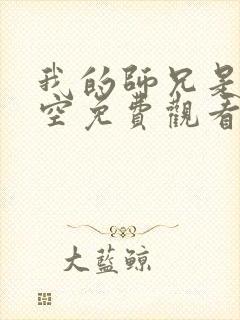 我的師兄是
空免費觀看
大藍鯨